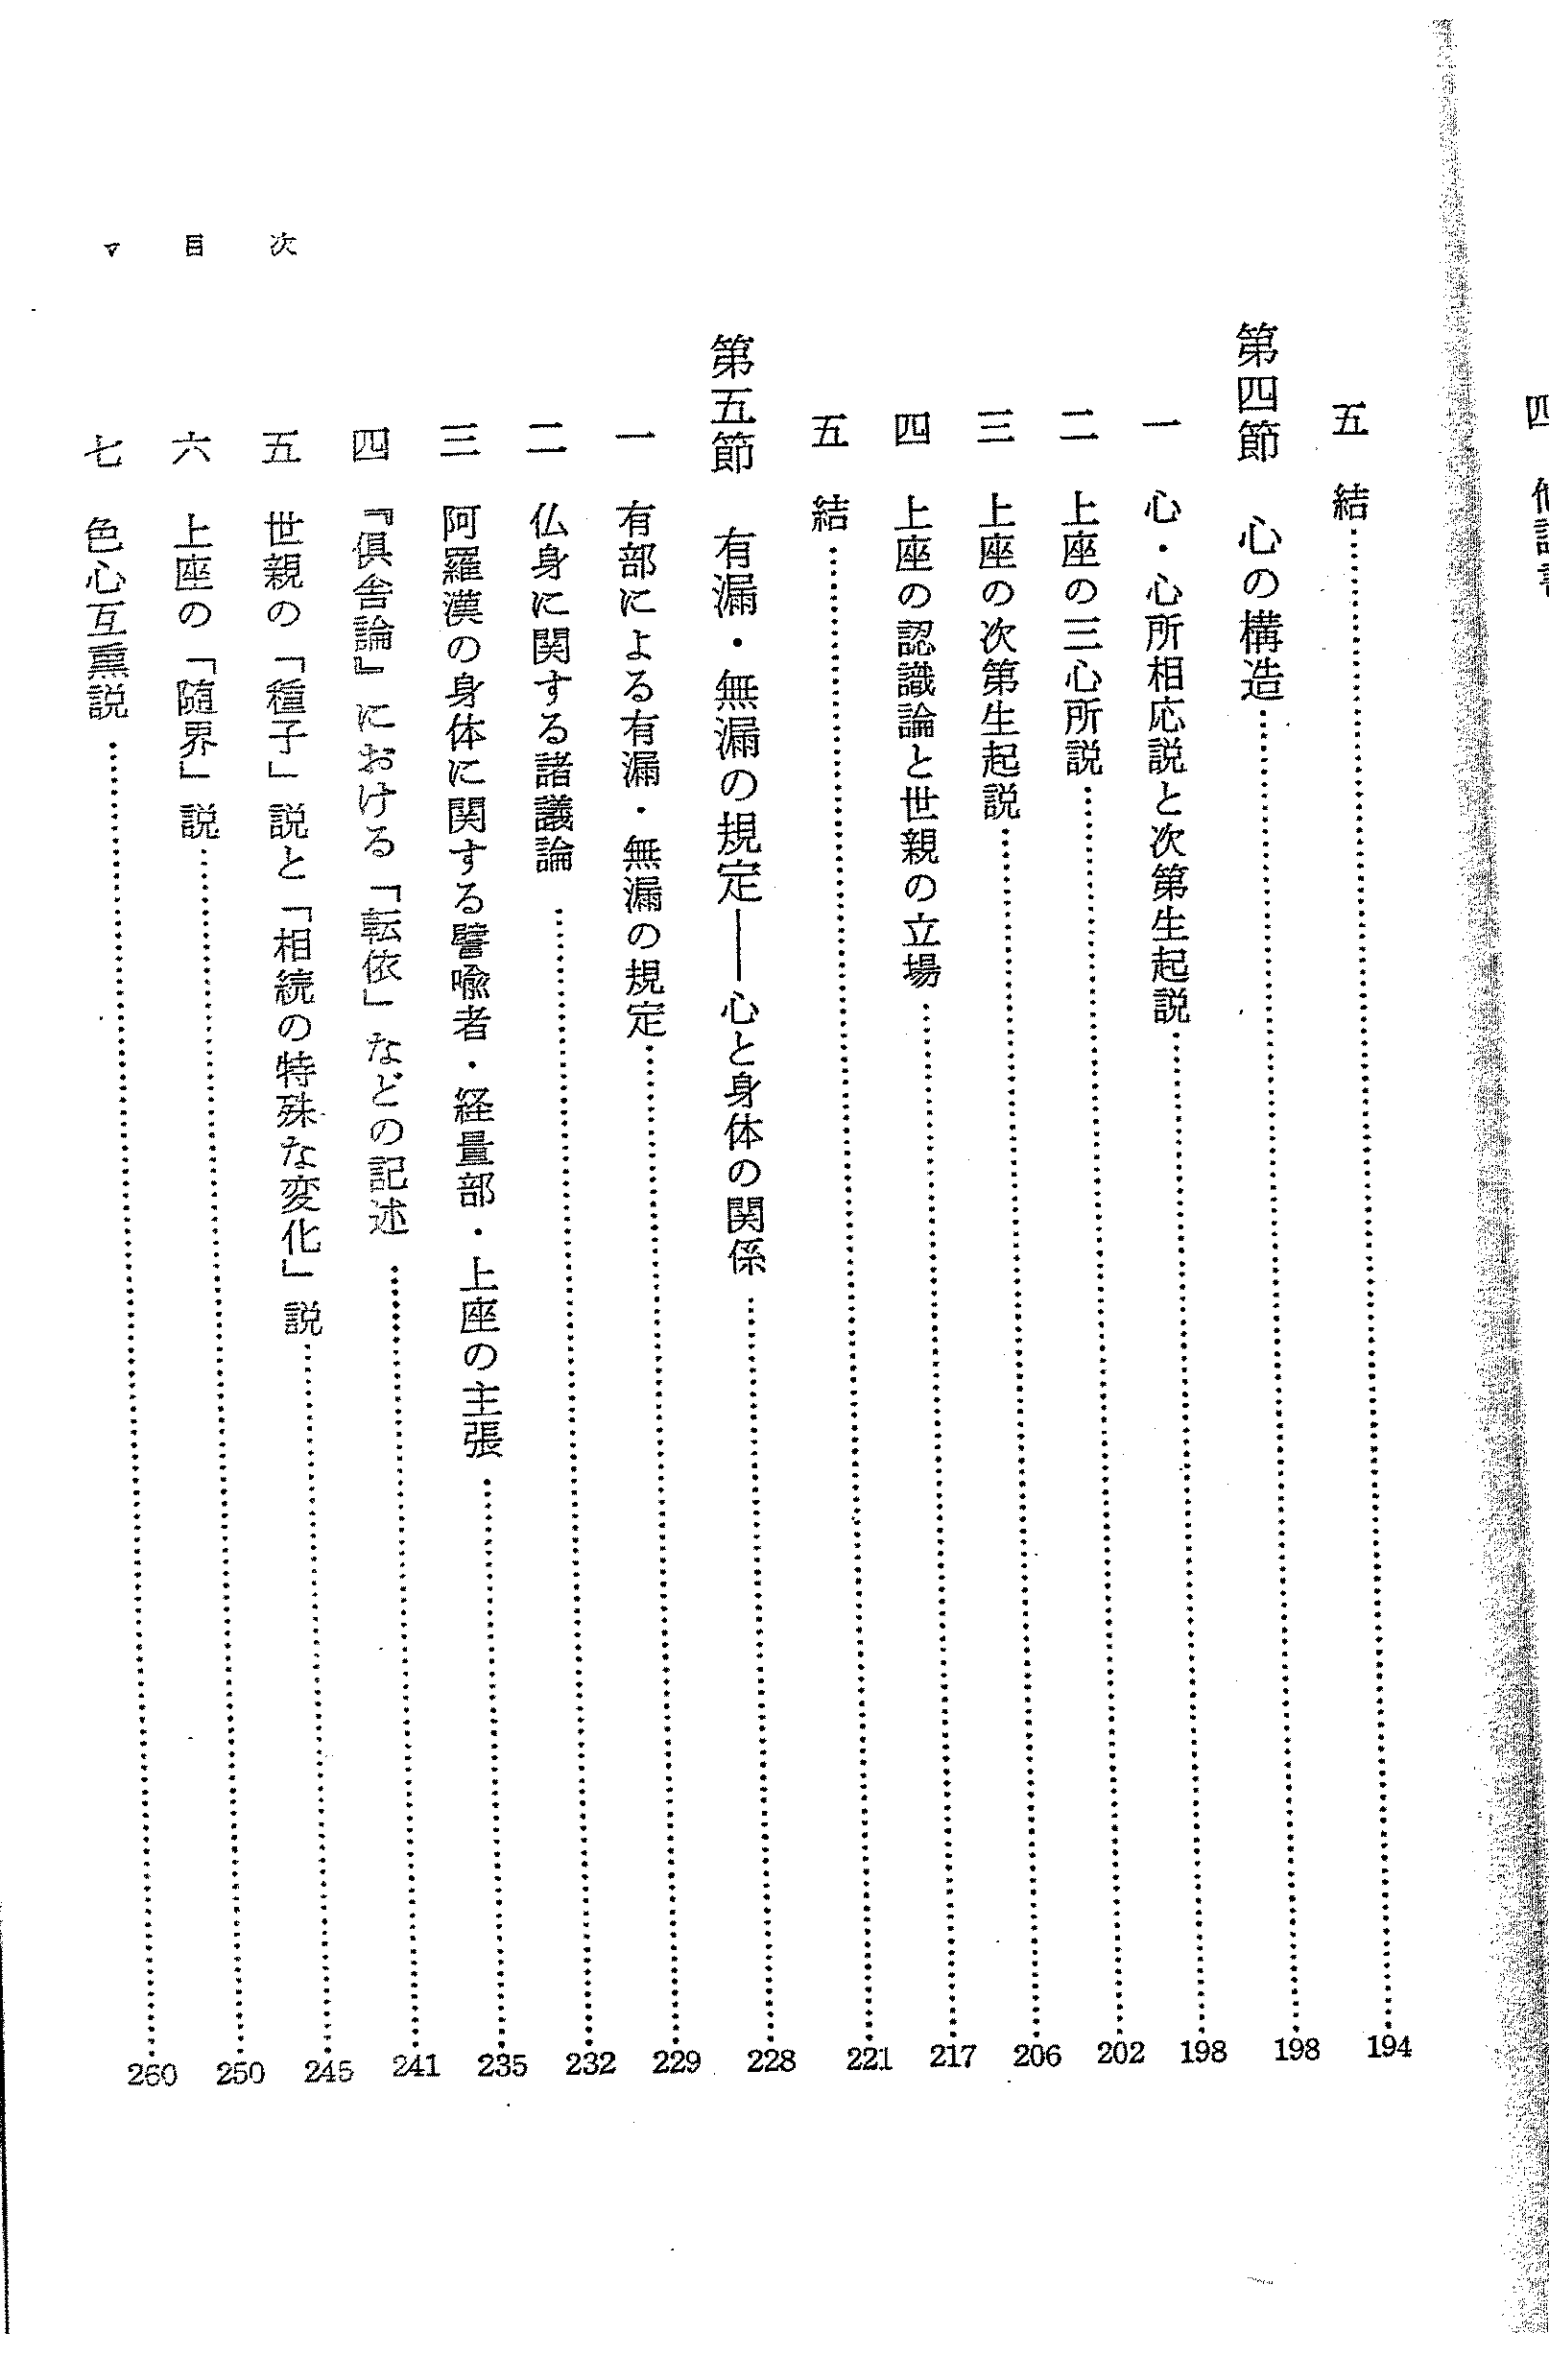 五　結……194
第四節　心の構造……198
一　心・心所相応説と次第生起説……198
二　上座の三心所説……202
三　上座の次第生起説……206
四　上座の認識論と世親の立場……217
五　結……221
第五節　有漏・無漏の規定――心と身体の関係……228
一　有部による有漏・無漏の規定……229
二　仏身に関する諸議論……232
三　阿羅漢の身体に関する譬喩者・経量部・上座の主張……235
四　『俱舎論』における「転依」などの記述……241
五　世親の「種子」説と「相続の特殊な変化」説……245
六　上座の「随界」説……250
七　色心互熏説……260
目次